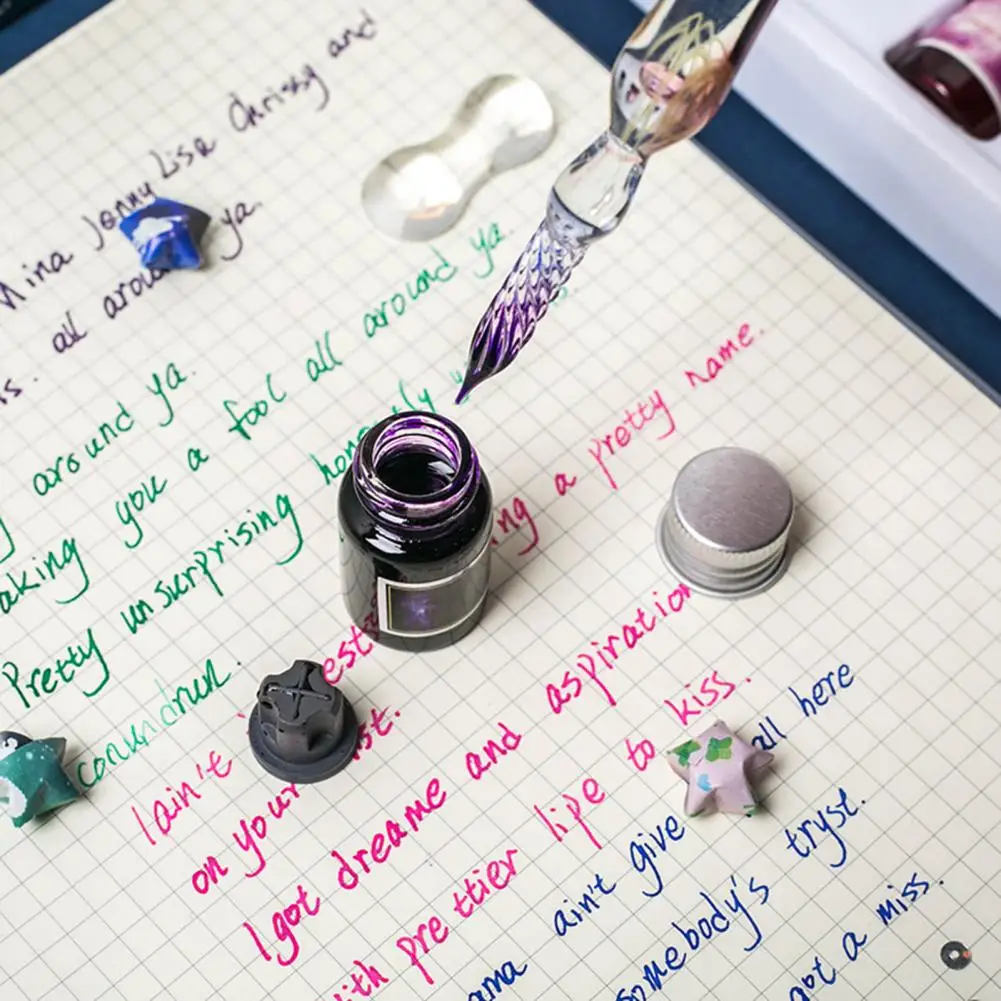 Nina Jenny Lisa Chrissy and
all around ya.
around ya.
all around ya
you a fool
Pretty unsurprising honestly
conundrum.
a pretty name.
I ain't
on your list.
I got dreame and aspiration
with prettier lipe to kiss.
ain't give all here
somebody's tryst.
got a miss.